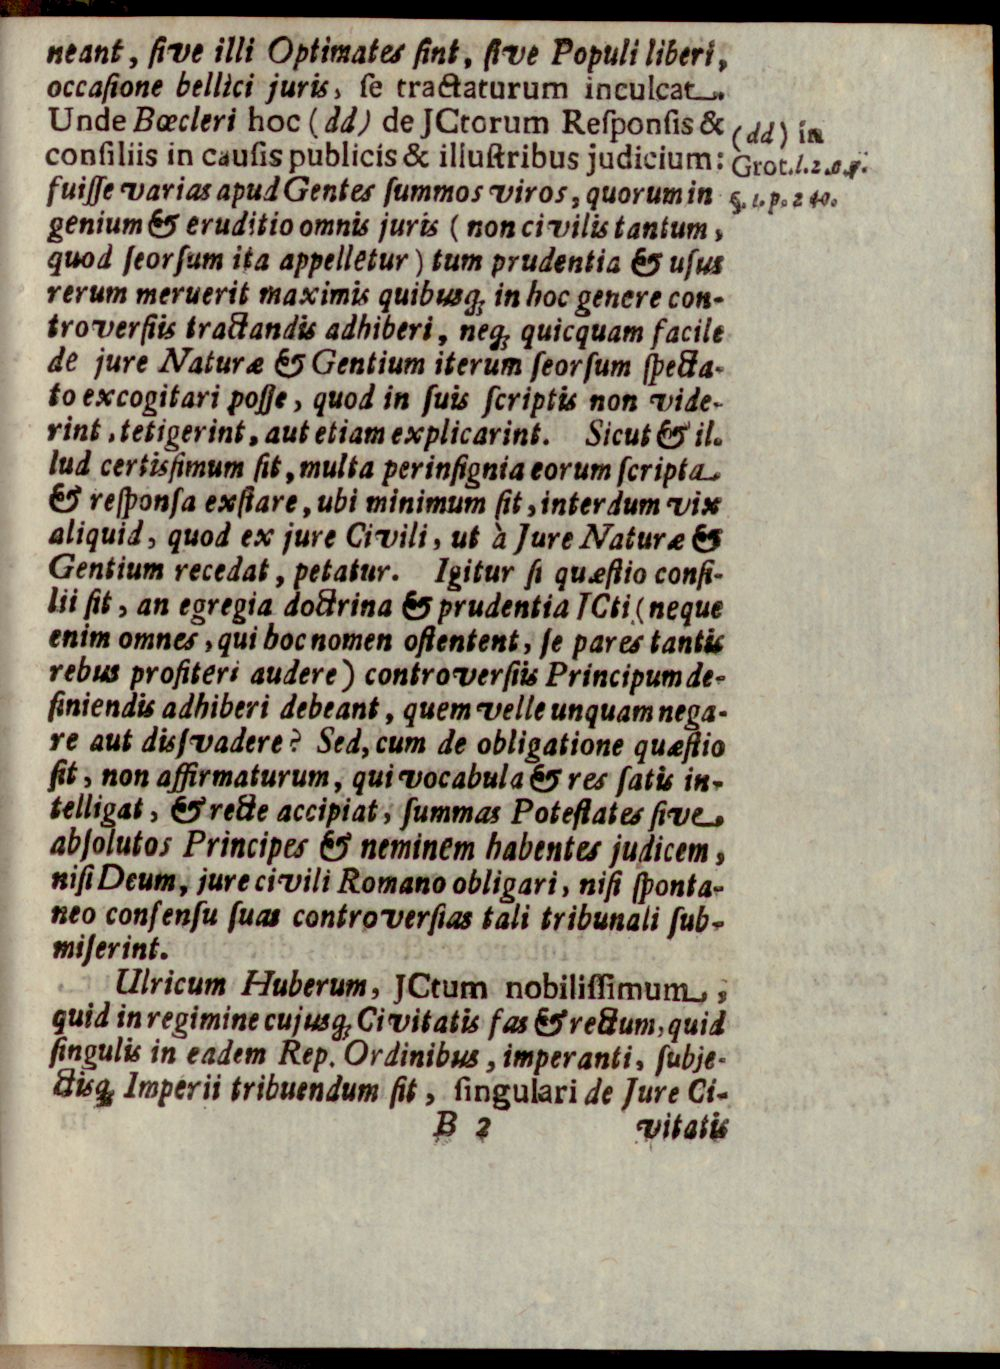 neant, ſive illi Optimates ſint, ſive Populi liberi,
occaſione bellici juris, ſe tractaturum inculcat.
Unde Bœcleri hoc (dd) de JCtorum Reſponſis &
conſiliis in cauſis publicis & illuſtribus judicium:
fuiſſe varias apud Gentes ſummos viros, quorum in
genium & eruditio omnis juris (non civilis tantum,
quod ſeorſum ita appelletur) tum prudentia & uſus
rerum meruerit maximis quibusq; in hoc genere con-
troverſiis tractandis adhiberi, neq; quicquam facile
de jure Naturæ & Gentium iterum ſeorſum ſpecta-
to excogitari poſſe, quod in ſuis ſcriptis non vide-
rint, tetigerint, aut etiam explicarint. Sicut & il-
lud certisſimum ſit, multa perinſignia eorum ſcripta
& reſponſa exſtare, ubi minimum ſit, interdum vix
aliquid, quod ex jure Civili, ut à Jure Naturæ &
Gentium recedat, petatur. Igitur ſi quæſtio conſi-
lii ſit, an egregia doctrina & prudentia JCti (neque
enim omnes, qui hoc nomen oſtentent, ſe pares tantis
rebus profiteri audere) controverſiis Principum de-
finiendis adhiberi debeant, quem velle unquam nega-
re aut disſvadere? Sed, cum de obligatione quæſtio
ſit, non affirmaturum, qui vocabula & res ſatis in-
telligat, & recte accipiat, ſummas Poteſtates ſive
abſolutos Principes & neminem habentes judicem,
niſi Deum, jure civili Romano obligari, niſi ſponta-
neo conſenſu ſuas controverſias tali tribunali ſub-
miſerint.
Ulricum Huberum, JCtum nobiliſſimum,
quid in regimine cujusq; Civitatis fas & rectum, quid
ſingulis in eadem Rep. Ordinibus, imperanti, ſubje-
ctisq; Imperii tribuendum ſit, ſingulari de Jure Ci-
B 2 vitatis
(dd) in
Grot. l. 2.
§. 1. p. 240.